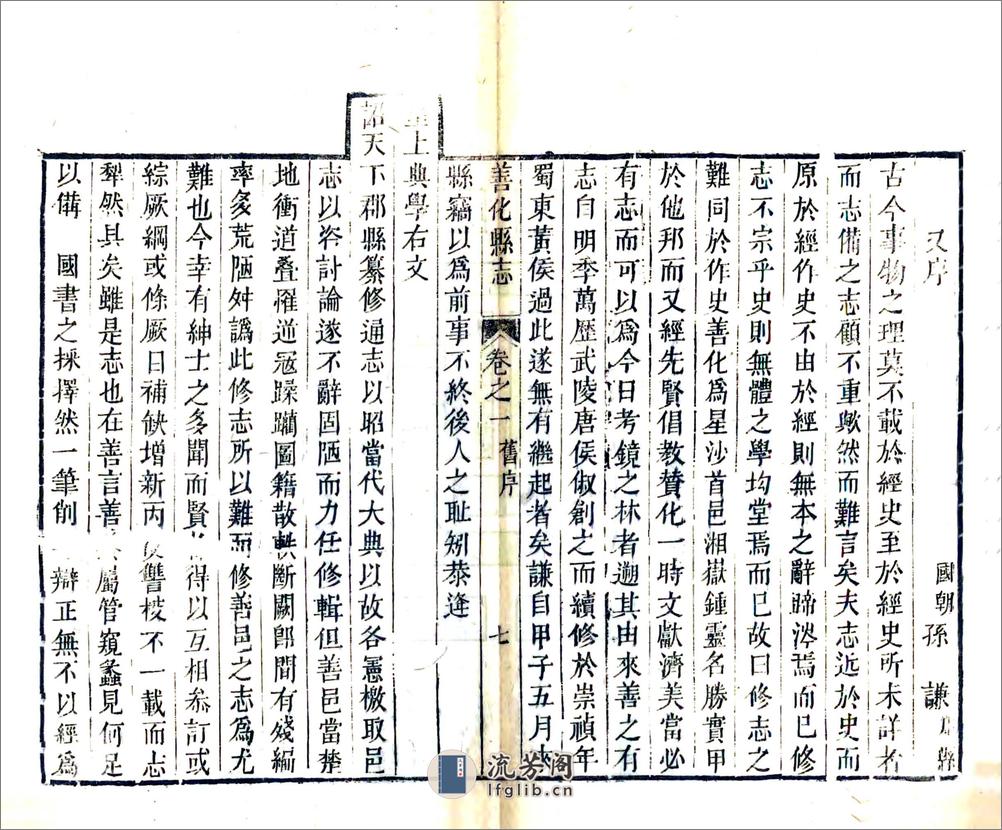 又序　國朝孫　謙
古今事物之理莫不載於經史至於經史所未詳者
而志備之志顧不重歟然而難言矣夫志近於史而
原於經作史不由於經則無本之辭蹄涔焉而已修
志不宗乎史則無體之學均堂焉而已故曰修志之
難同於作史善化爲星沙首邑湘嶽鍾靈名勝實甲
於他邦而又經先賢倡教贊化一時文獻濟美當必
有志而可以爲今日考鏡之林者遡其由來善之有
志自明季萬歷武陵唐侯俶創之而續修於崇禎年
蜀東黃侯過此遂無有繼起者矣謙自甲子五月
善化縣志　卷之一　舊序　七
縣竊以爲前事不終後人之耻矧恭逢
上典學右文
詔天下郡縣纂修通志以昭當代大典以故各憲檄取邑
志以咨討論遂不辭固陋而力任修輯但善邑當楚
地衝道叠罹逆冦躁躪圖籍散軼斷闕郎間有殘編
率多荒陋舛譌此修志所以難而修善邑之志爲尤
難也今幸有紳士之多聞而賢者得以互相叅訂或
綜厥綱或條厥目補缺增新丙讐校不一載而志
犂然具矣雖是志也在善言善屬管窺蠡見何足
以備　國書之採擇然一筆削一辯正無不以經爲
流芳阁
lfglib.cn